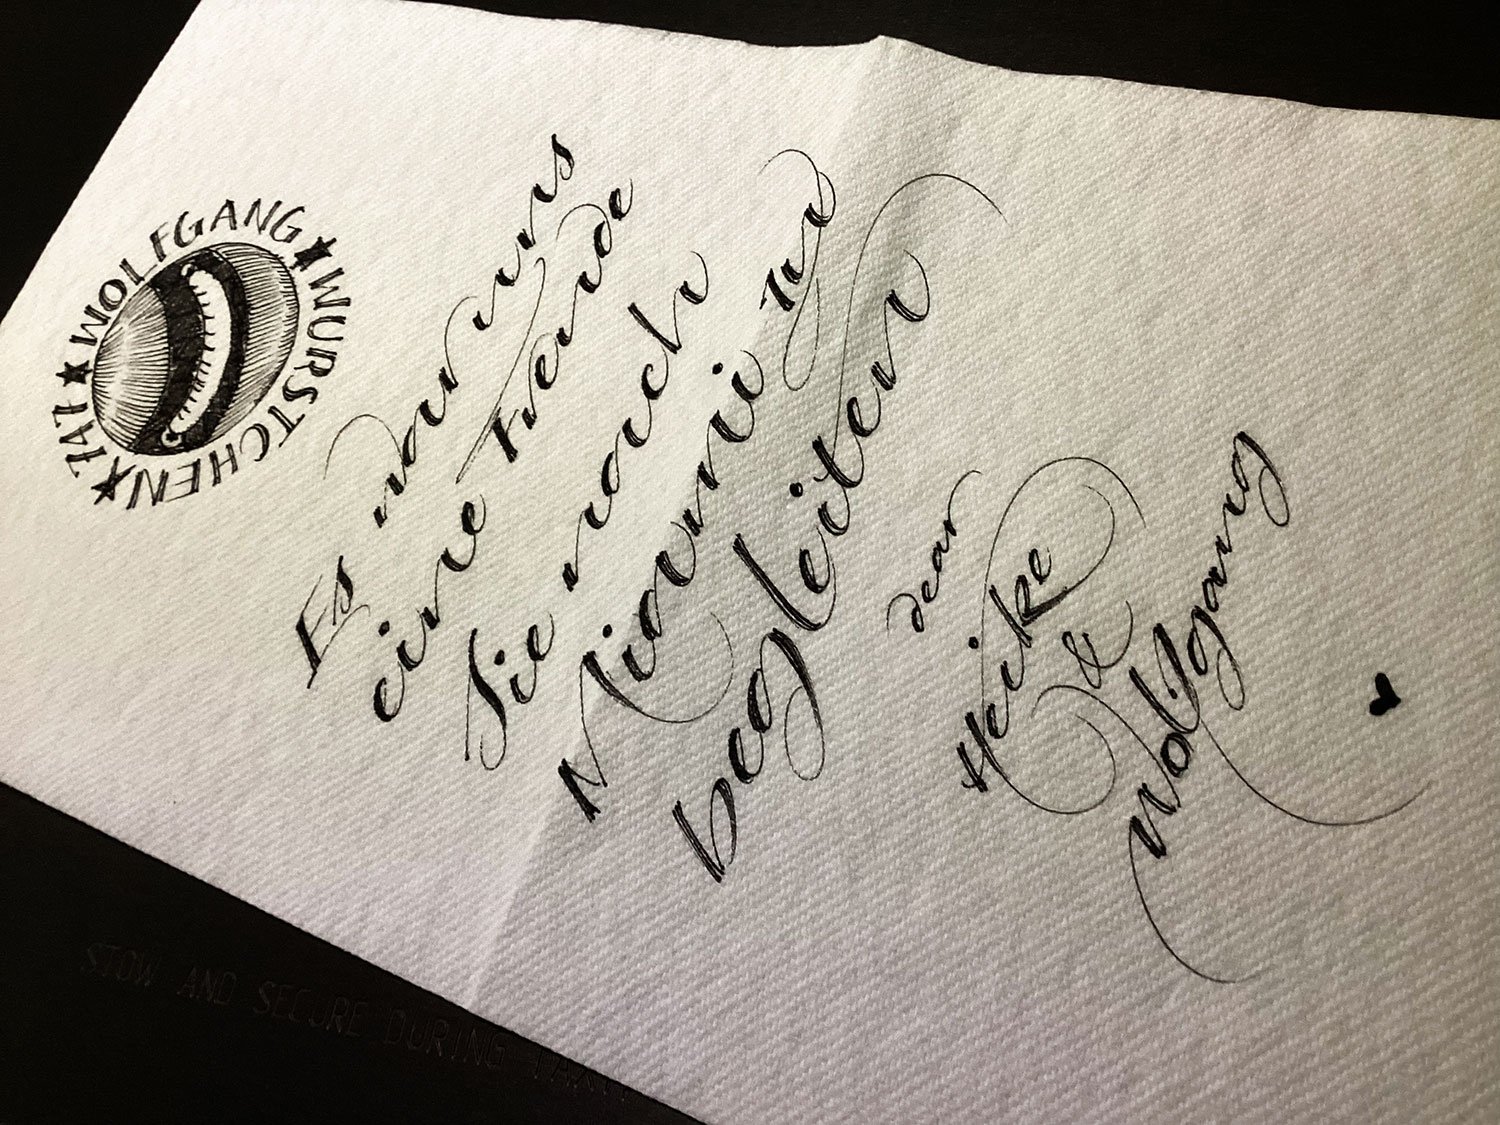 WOLFGANG ★ WURSTCHEN ★ ★
Es war uns
eine Freude
Sie nach
Miami zu
begleiten
dear
Heike
&
Wolfgang
♥
STOW AND SECURE DURING TAXI